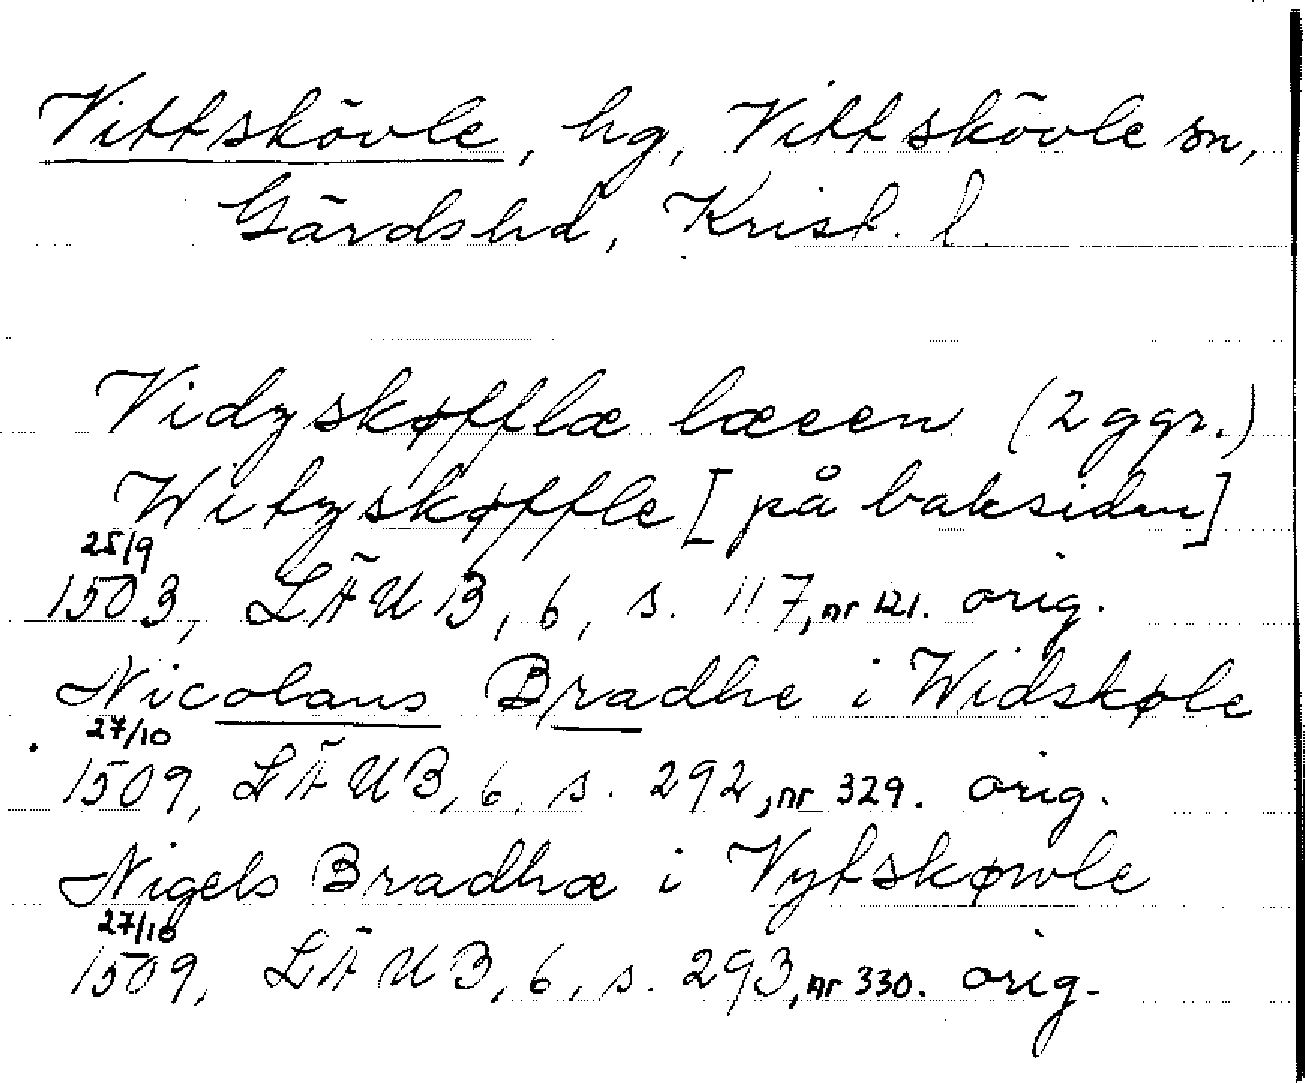 Vittskövle, hg, Vittskövle sn,
Gärds hd, Krist. l.
Vidzskøfflæ læeen (2 ggr.)
Witzskøffle [på baksidan]
25/9
1503, LÄUB, 6, s. 117, nr 121. orig.
Nicolaus Bradhe i Widskøle
27/10
1509, LÄUB, 6, s. 292, nr 329. orig.
Nigels Bradhæ i Vytskøwle
27/10
1509, LÄUB, 6, s. 293, nr 330. orig.